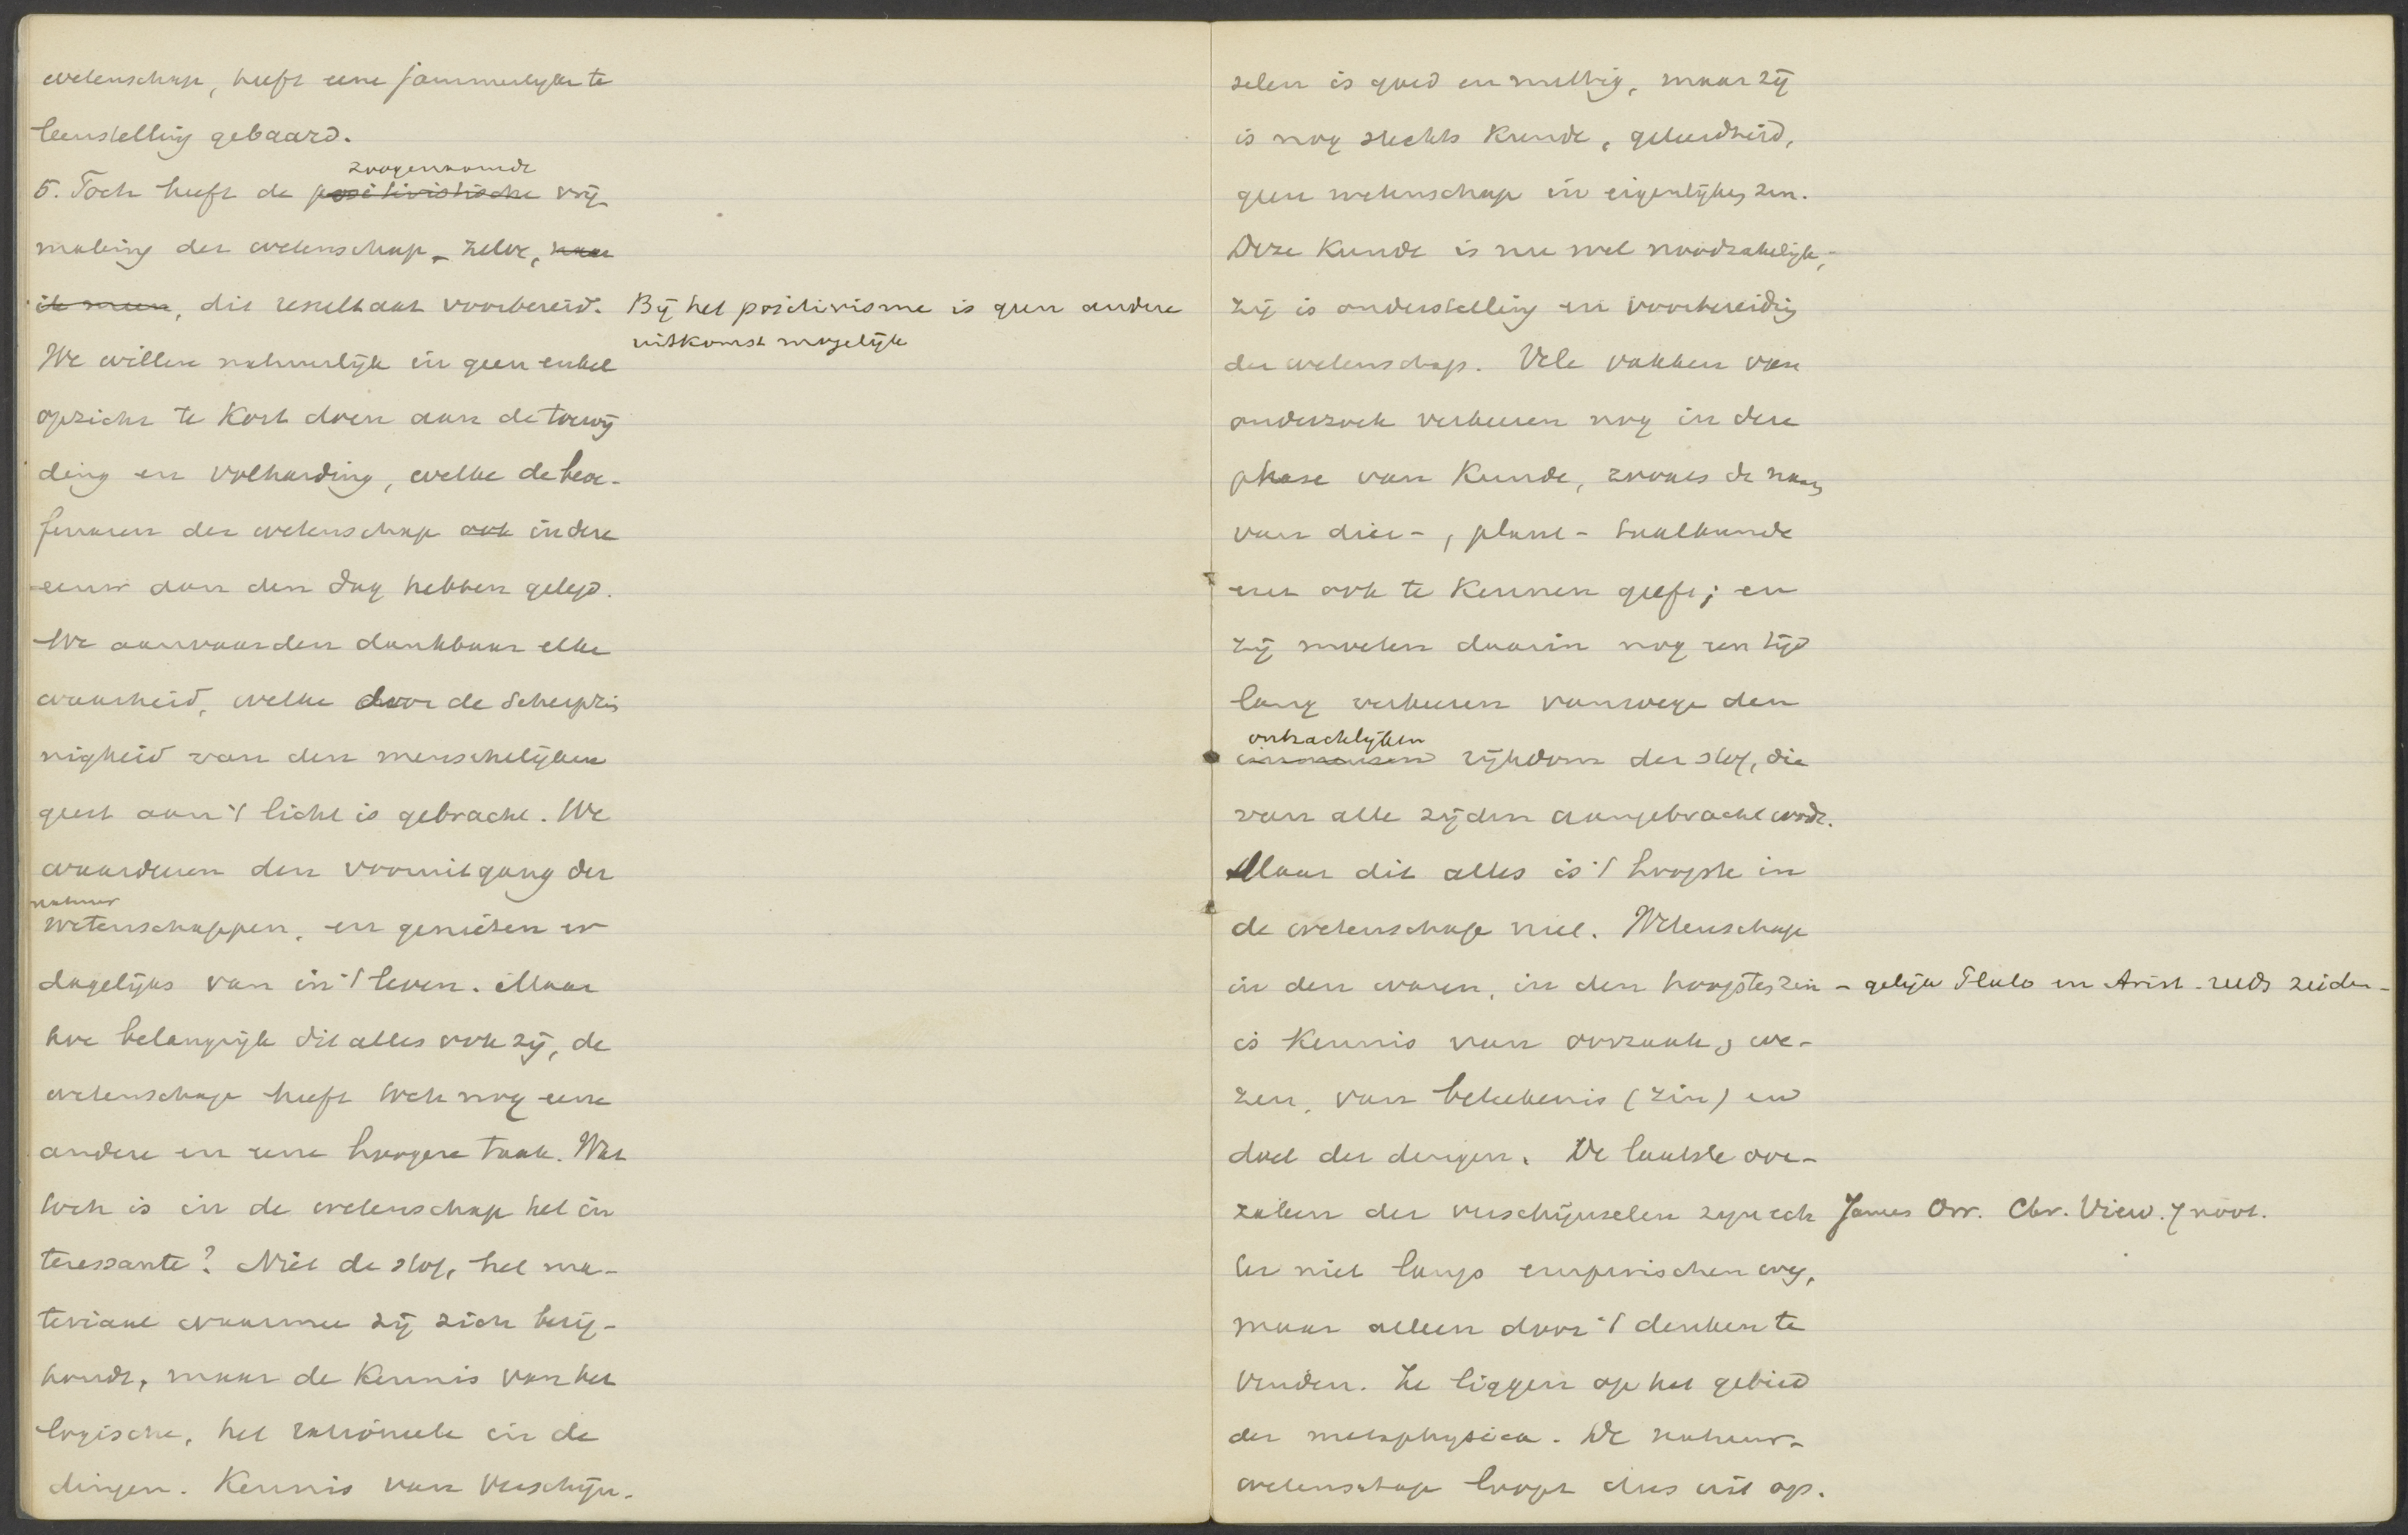 wetenschap, heeft eene jammerlyke te
leurstelling gebaard.
zoogenaamde
5. Toch heeft de positivistische vrij
making der wetenschap - zelve, naar
ik meen, dit resultaat voorbereid. Bij het positivisme is geen andere
uitkomst mogelijk
We willen natuurlijk in geen enkel
opzicht te kort doen aan de toewij
ding en volharding, welke de beoe-
fenaren der wetenschap ook in deze
eeuw aan den dag hebben gelegd.
We aanvaarden dankbaar elke
waarheid, welke door de scherpzin
nigheid van den menschelijken
geest aan 't licht is gebracht. We
waarderen den vooruitgang der
natuur
wetenschappen, en genieten er
dagelijks van in 't leven. Maar
hoe belangrijk dit alles ook zij, de
wetenschap heeft toch nog eene
andere en eene hoogere taak. Wat
toch is in de wetenschap het in
teressante? Niet de stof, het ma-
teriaal waarmee zij zich bezig-
houdt, maar de kennis van het
logische, het rationeele in de
dingen. Kennis van verschijn-
selen is goed en nuttig, maar zij
is nog slechts kunde, geleerdheid,
geen wetenschap in eigenlijken zin.
Deze kunde is nu wel noodzakelijk,-
zij is onderstelling en voorbereiding
der wetenschap. Vele vakken van
onderzoek verkeeren nog in deze
phase van kunde, zooals de naam
van dier-, plant- taalkunde
enz ook te kennen geeft; en
zij moeten daarin nog een tijd
lang verkeeren vanwege den
ontzachlijken
immensen rijkdom der stof, die
van alle zijden aangebracht wordt.
Maar dit alles is 't hoogste in
de wetenschap niet. Wetenschap
in den waren, in den hoogsten zin - gelijk Plato en Arist. reeds zeiden -
is kennis van oorzaak, we-
zen, van beteekenis (zin) en
doel der dingen. De laatste oor-
zaken der verschijnselen zyn ech
ter niet langs empirischen weg,
maar alleen door 't denken te
vinden. Ze liggen op het gebied
der metaphysica. De natuur-
wetenschap loopt dus uit op.
James Orr. Chr. View. 7 noot.